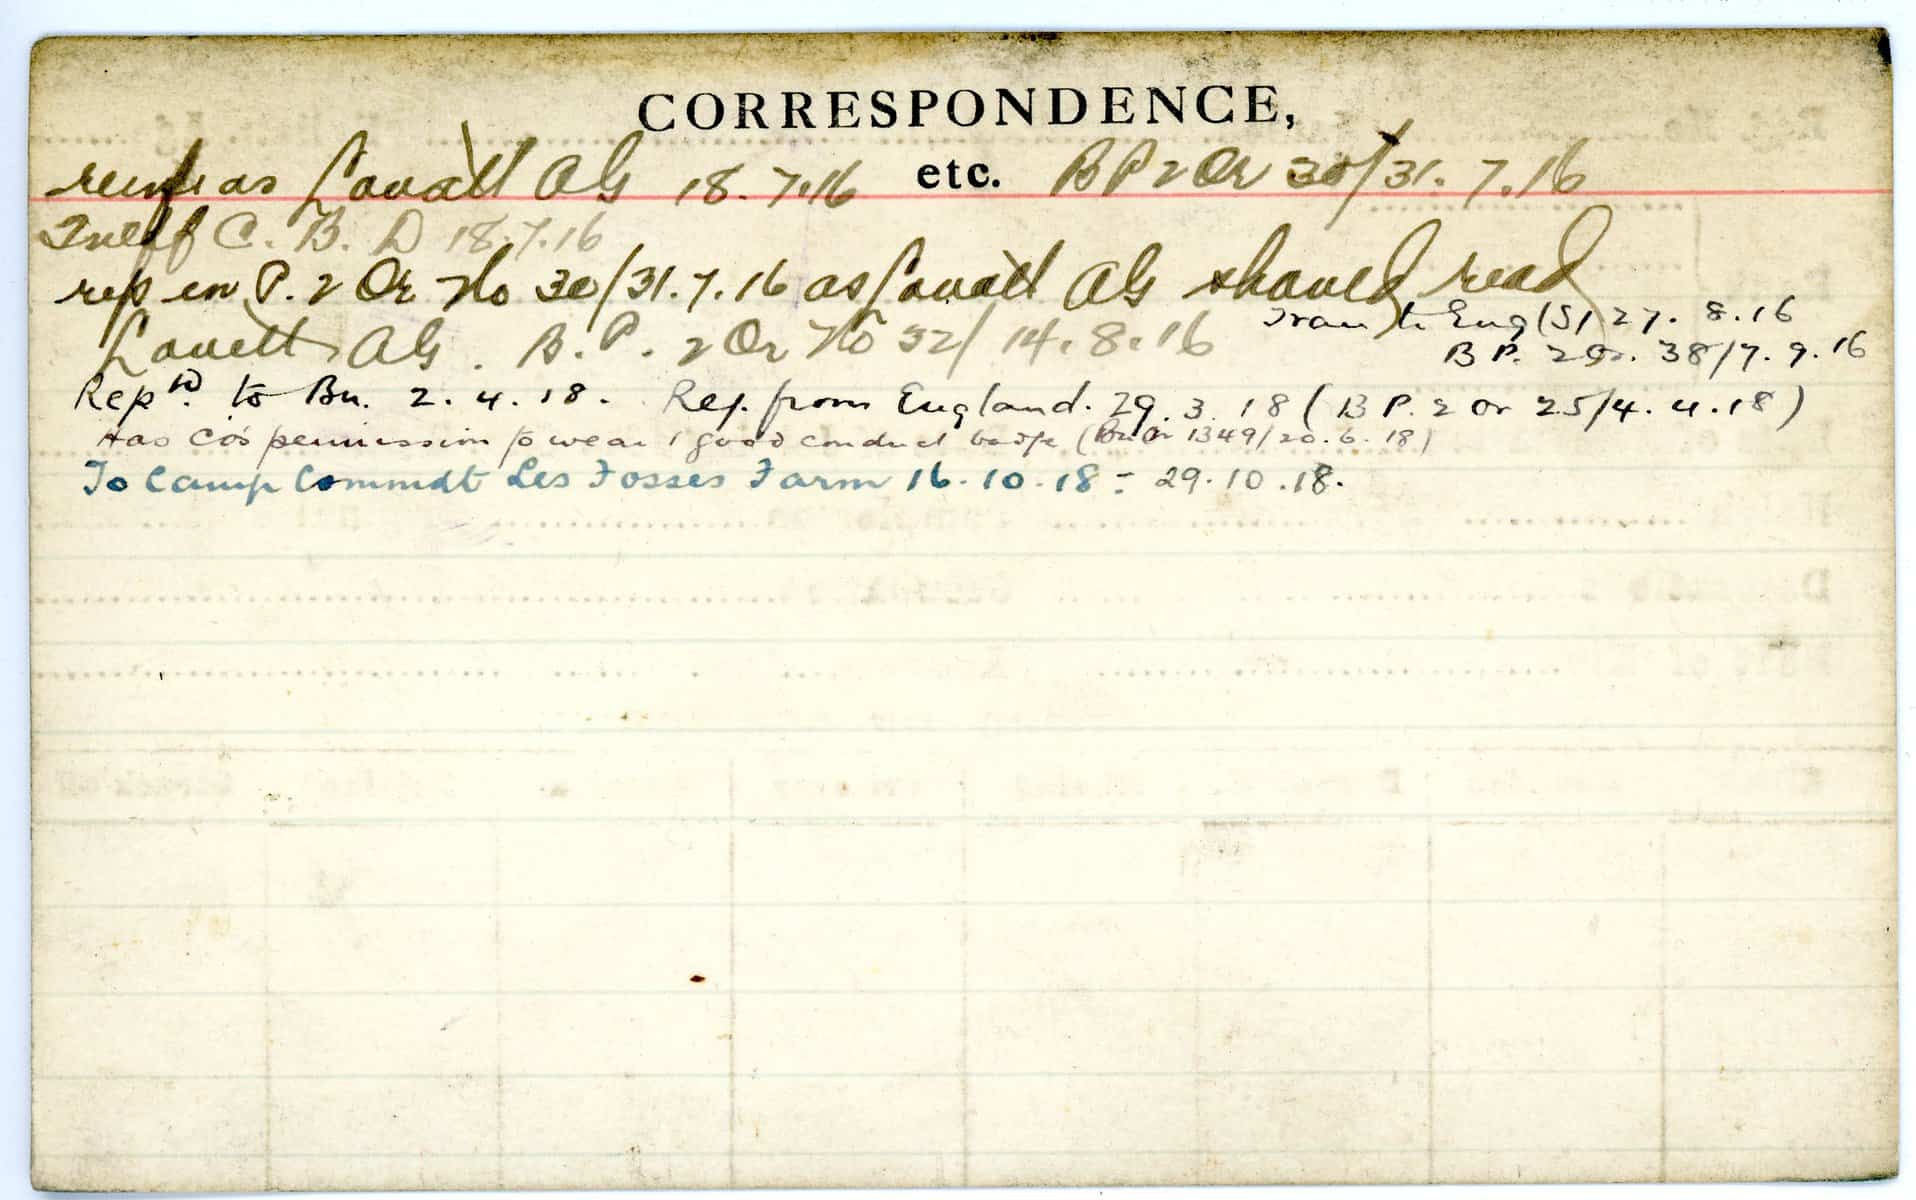 CORRESPONDENCE,
etc.
reinf as Lovatt AG 18.7.16 BP 2 Or 30/31.7.16
C. B. D 18.7.16
rep in P. 2 Or No 30/31.7.16 as Lovatt AG should read
Lovett AG. B. P. 2 Or No 32/14.8.16
Tran to Eng (S) 27. 8.16
B P. 2 Or. 38/7. 9. 16
Repd. to Bn. 2. 4. 18. Rej. from England. 29. 3. 18 (B P. 2 or 25/4. 4. 18)
Has Co's permission to wear 1 good conduct badge (Bn Or 1349/20. 6. 18)
To Camp Commdt Les Fosses Farm 16.10.18 - 29.10.18.